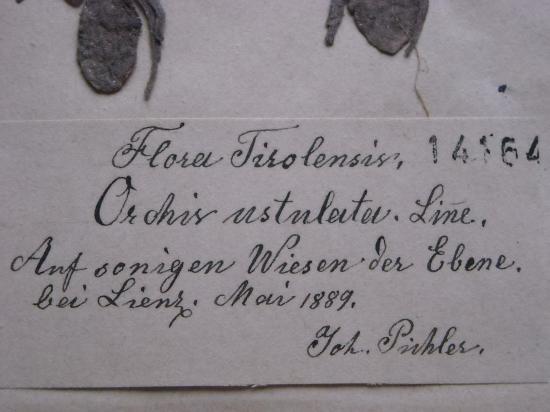 Flora Tirolensis. 14164
Orchis ustulata. Line.
Auf sonigen Wiesen der Ebene.
bei Lienz. Mai 1889.
Joh. Pichler.